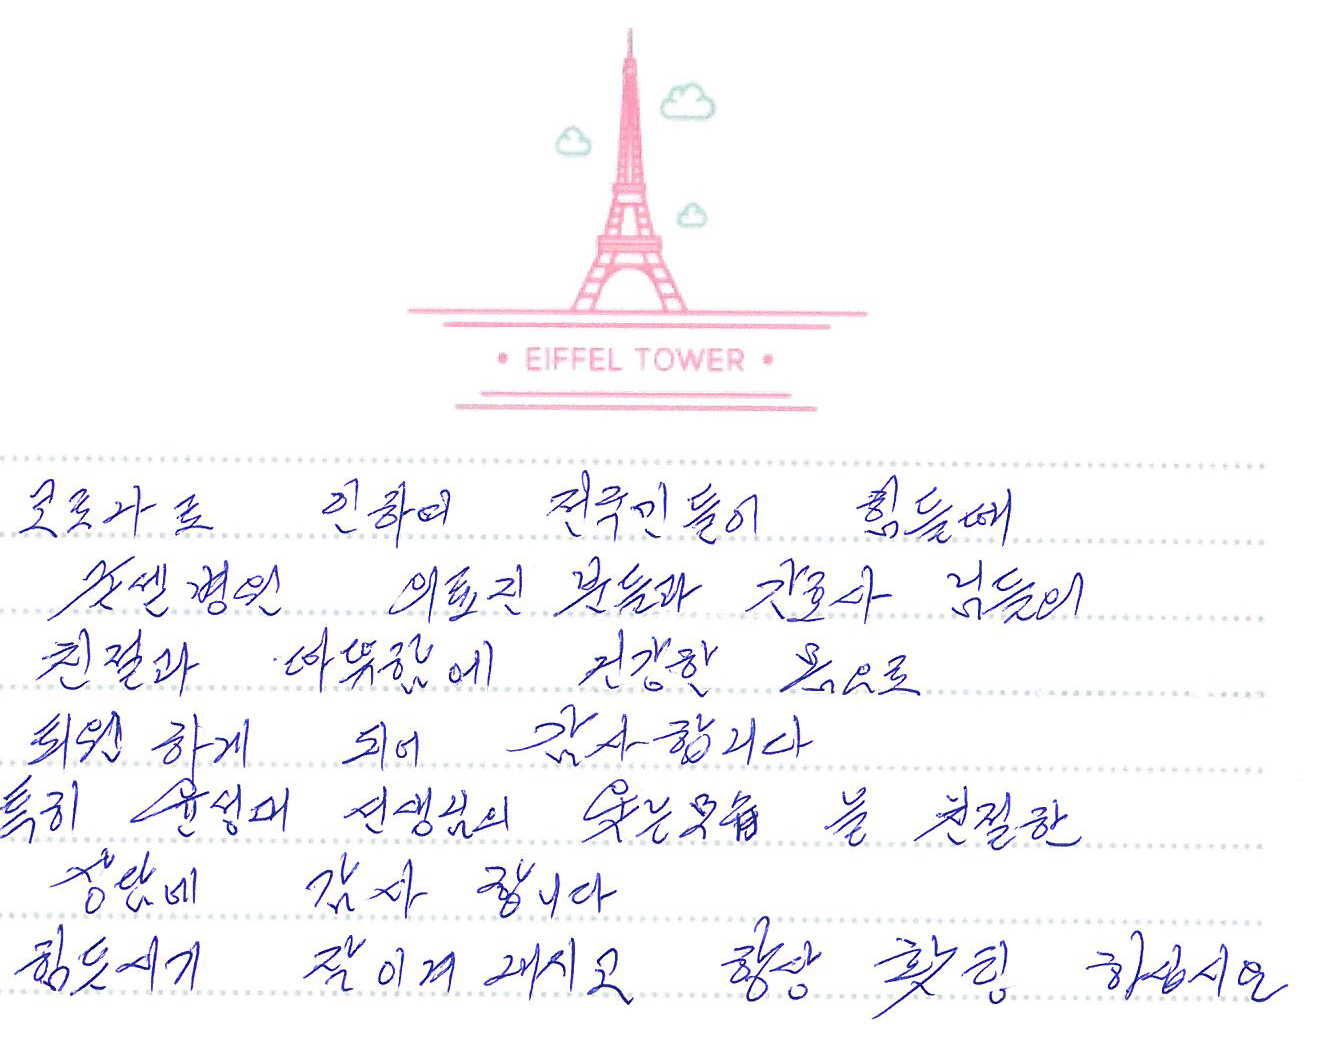 EIFFEL TOWER
코로나로 인하여 전국민들이 힘들때
굿셀병원 의료진 분들과 간호사 님들의
친절과 따뜻함에 건강한 몸으로
퇴원 하게 되어 감사합니다
특히 윤성대 선생님의 웃는모습 늘 친절한
상담에 감사 합니다
힘든시기 잘 이겨 내시고 항상 홧팅 하십시요